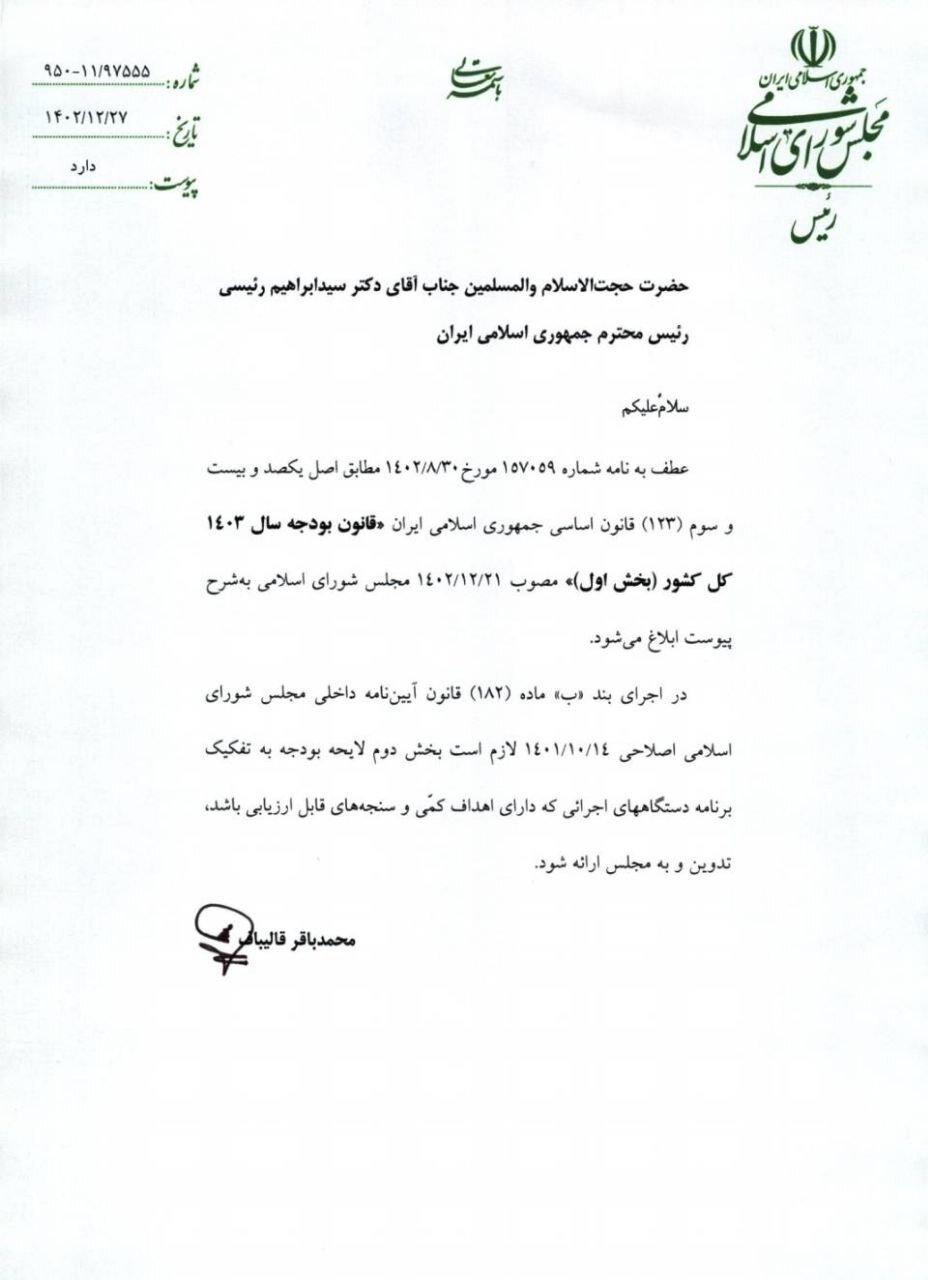 جمهوری اسلامی ایران
مجلس شورای اسلامی
رئیس
باسمه تعالی
شماره: ۹۵۰-۱۱/۹۷۵۵۵
تاریخ: ۱۴۰۲/۱۲/۲۷
پیوست: دارد
حضرت حجت‌الاسلام والمسلمین جناب آقای دکتر سیدابراهیم رئیسی
رئیس محترم جمهوری اسلامی ایران
سلامٌ‌علیکم
عطف به نامه شماره ۱۵۷۰۵۹ مورخ ۱۴۰۲/۸/۳۰ مطابق اصل یکصد و بیست
و سوم (۱۲۳) قانون اساسی جمهوری اسلامی ایران «قانون بودجه سال ۱۴۰۳
کل کشور (بخش اول)» مصوب ۱۴۰۲/۱۲/۲۱ مجلس شورای اسلامی به‌شرح
پیوست ابلاغ می‌شود.
در اجرای بند «ب» ماده (۱۸۲) قانون آیین‌نامه داخلی مجلس شورای
اسلامی اصلاحی ۱۴۰۱/۱۰/۱۴ لازم است بخش دوم لایحه بودجه به تفکیک
برنامه دستگاههای اجرائی که دارای اهداف کمّی و سنجه‌های قابل ارزیابی باشد،
تدوین و به مجلس ارائه شود.
محمدباقر قالیباف